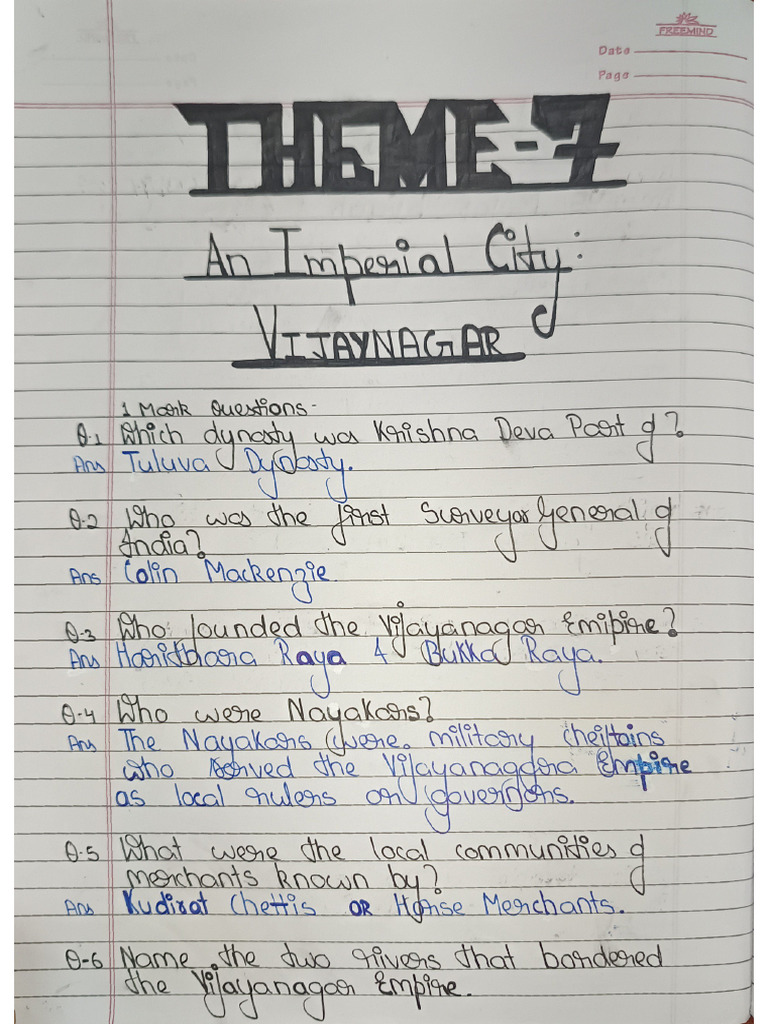 FREEMIND
Date
Page
THEME-7
An Imperial City:
VIJAYNAGAR
1 Mark Questions-
Q.1 Which dynasty was Krishna Deva Part of?
Ans Tuluva Dynasty.
Q.2 Who was the first Surveyor General of
India?
Ans Colin Mackenzie.
Q.3 Who founded the Vijayanagar Emipire?
Ans Harikhara Raya & Bukka Raya.
Q.4 Who were Nayakars?
Ans The Nayakars were military cheiftains
who served the Vijayanagara Empire
as local rulers or governors.
Q.5 What were the local communities of
merchants known by?
Ans Kudirat Chettis OR Horse Merchants.
Q-6 Name the two rivers that bordered
the Vijayanagar Empire.